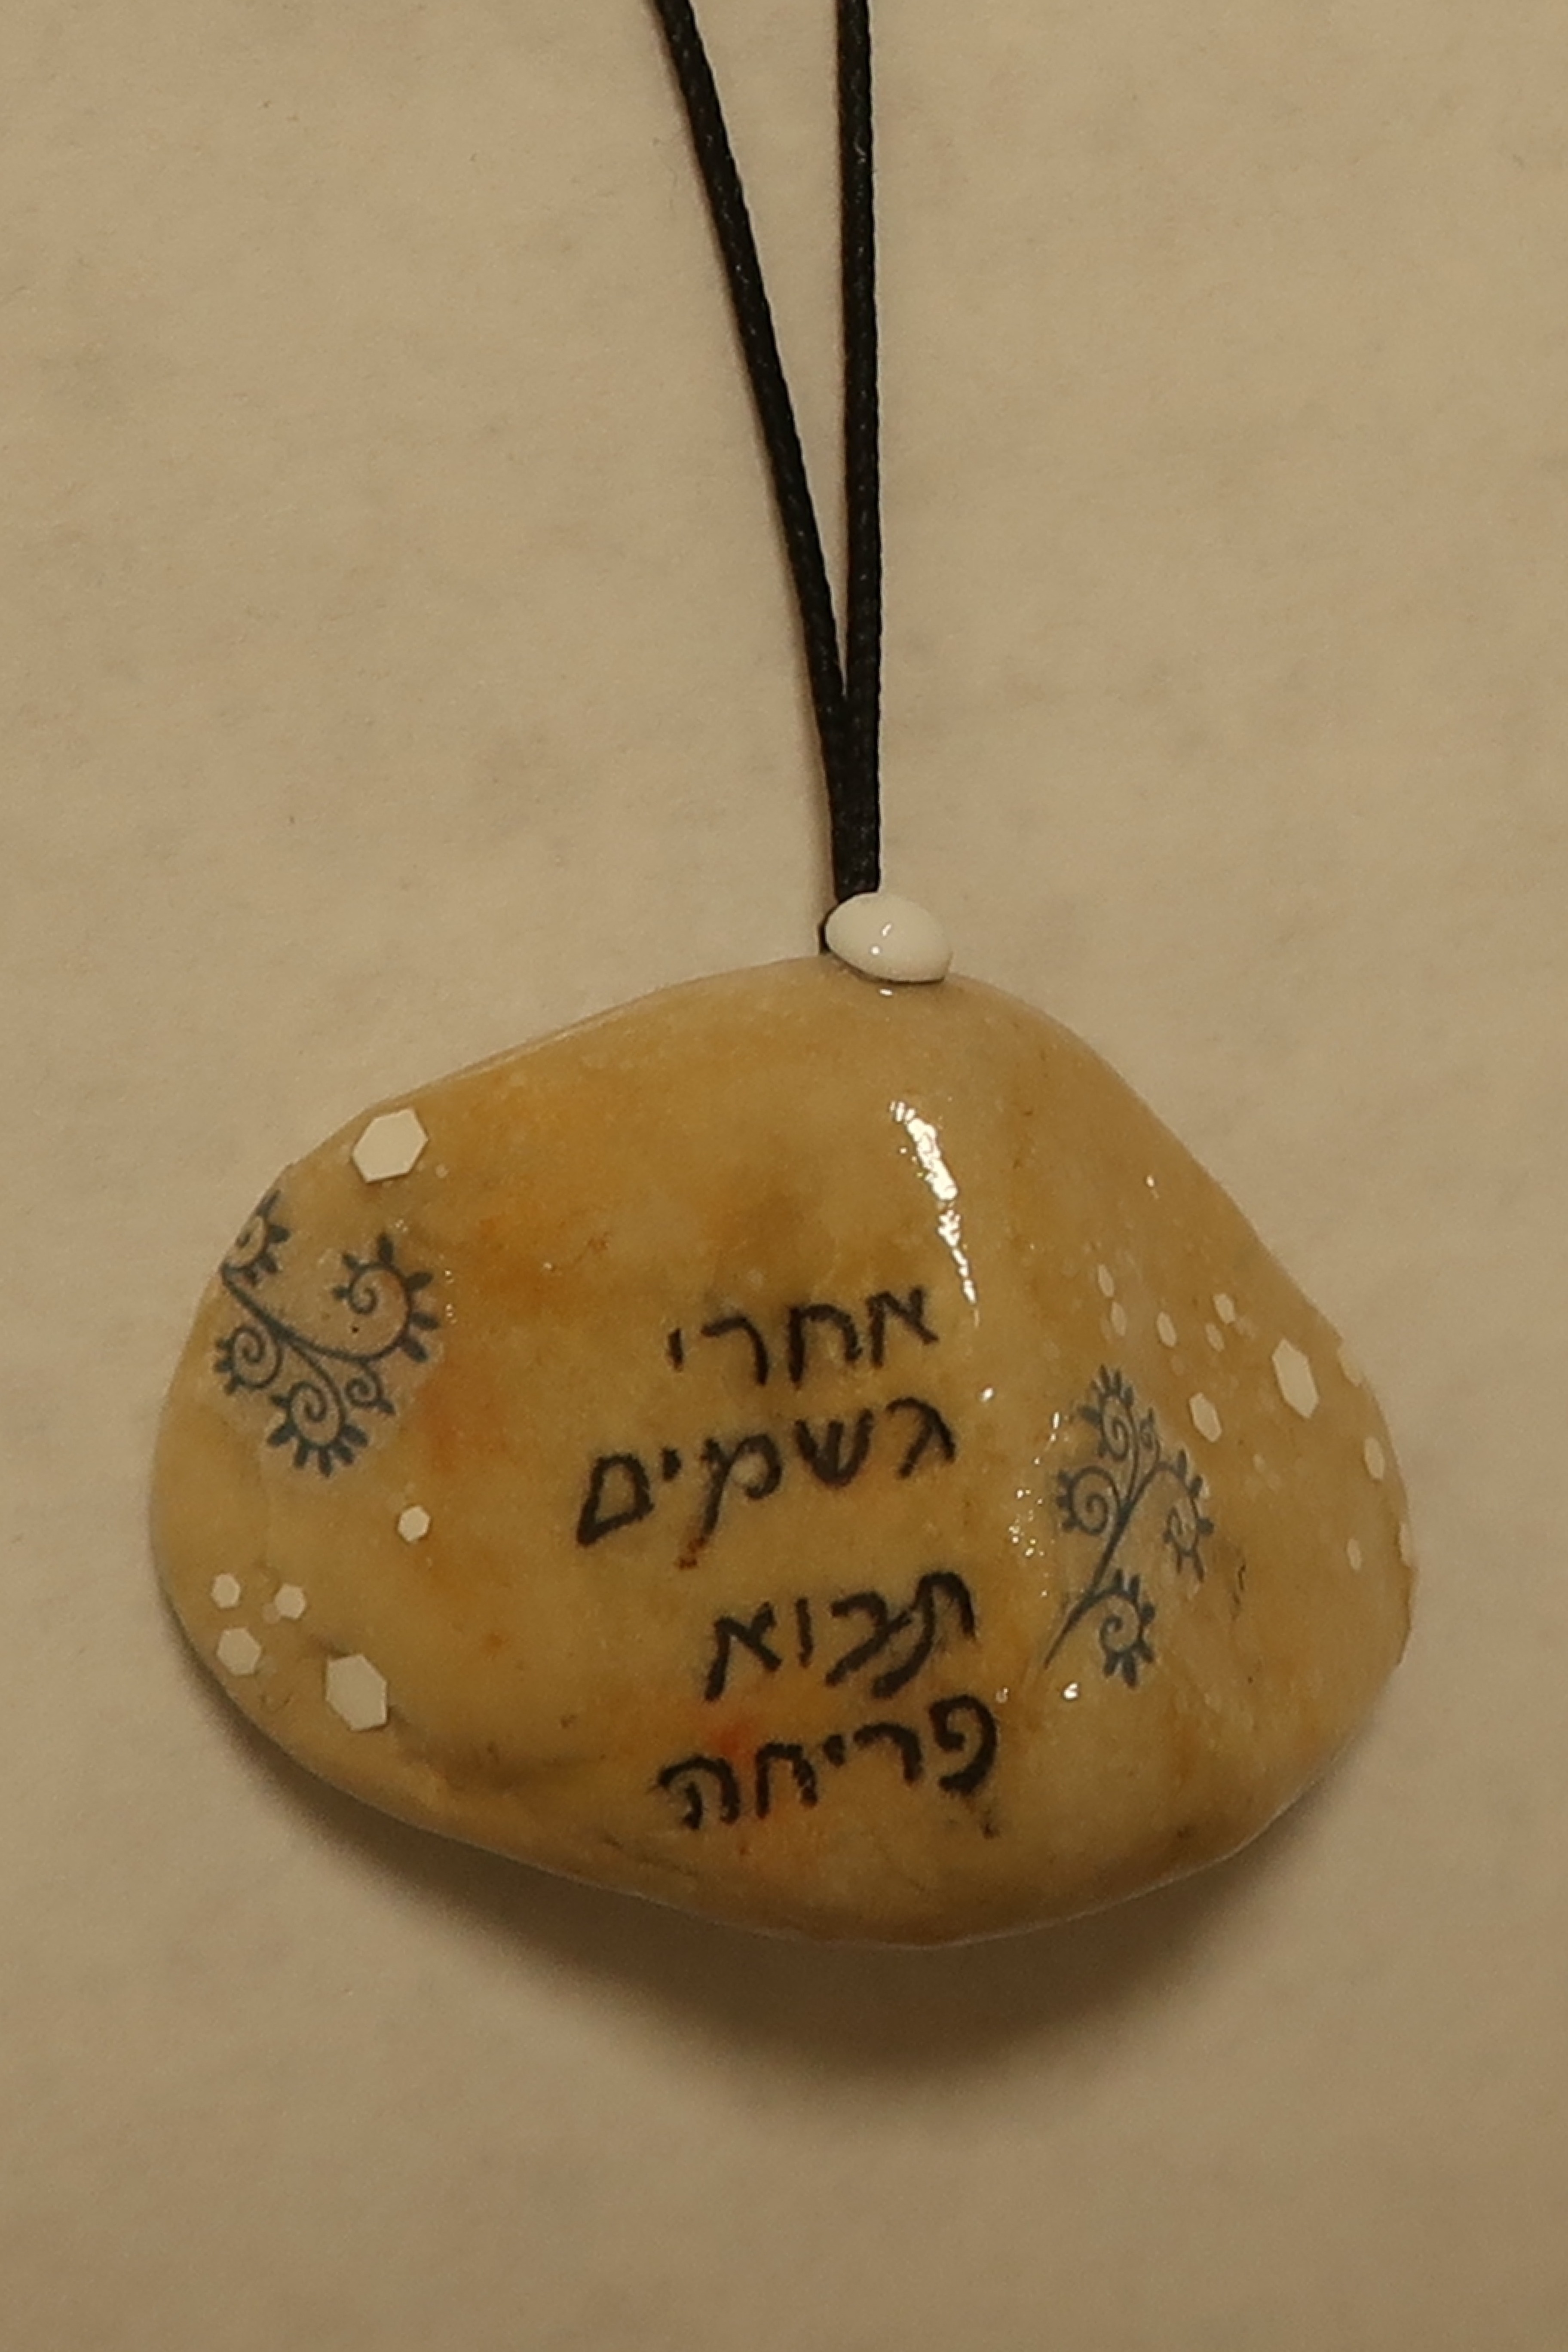 אחרי
גשמים
תבוא
פריחה